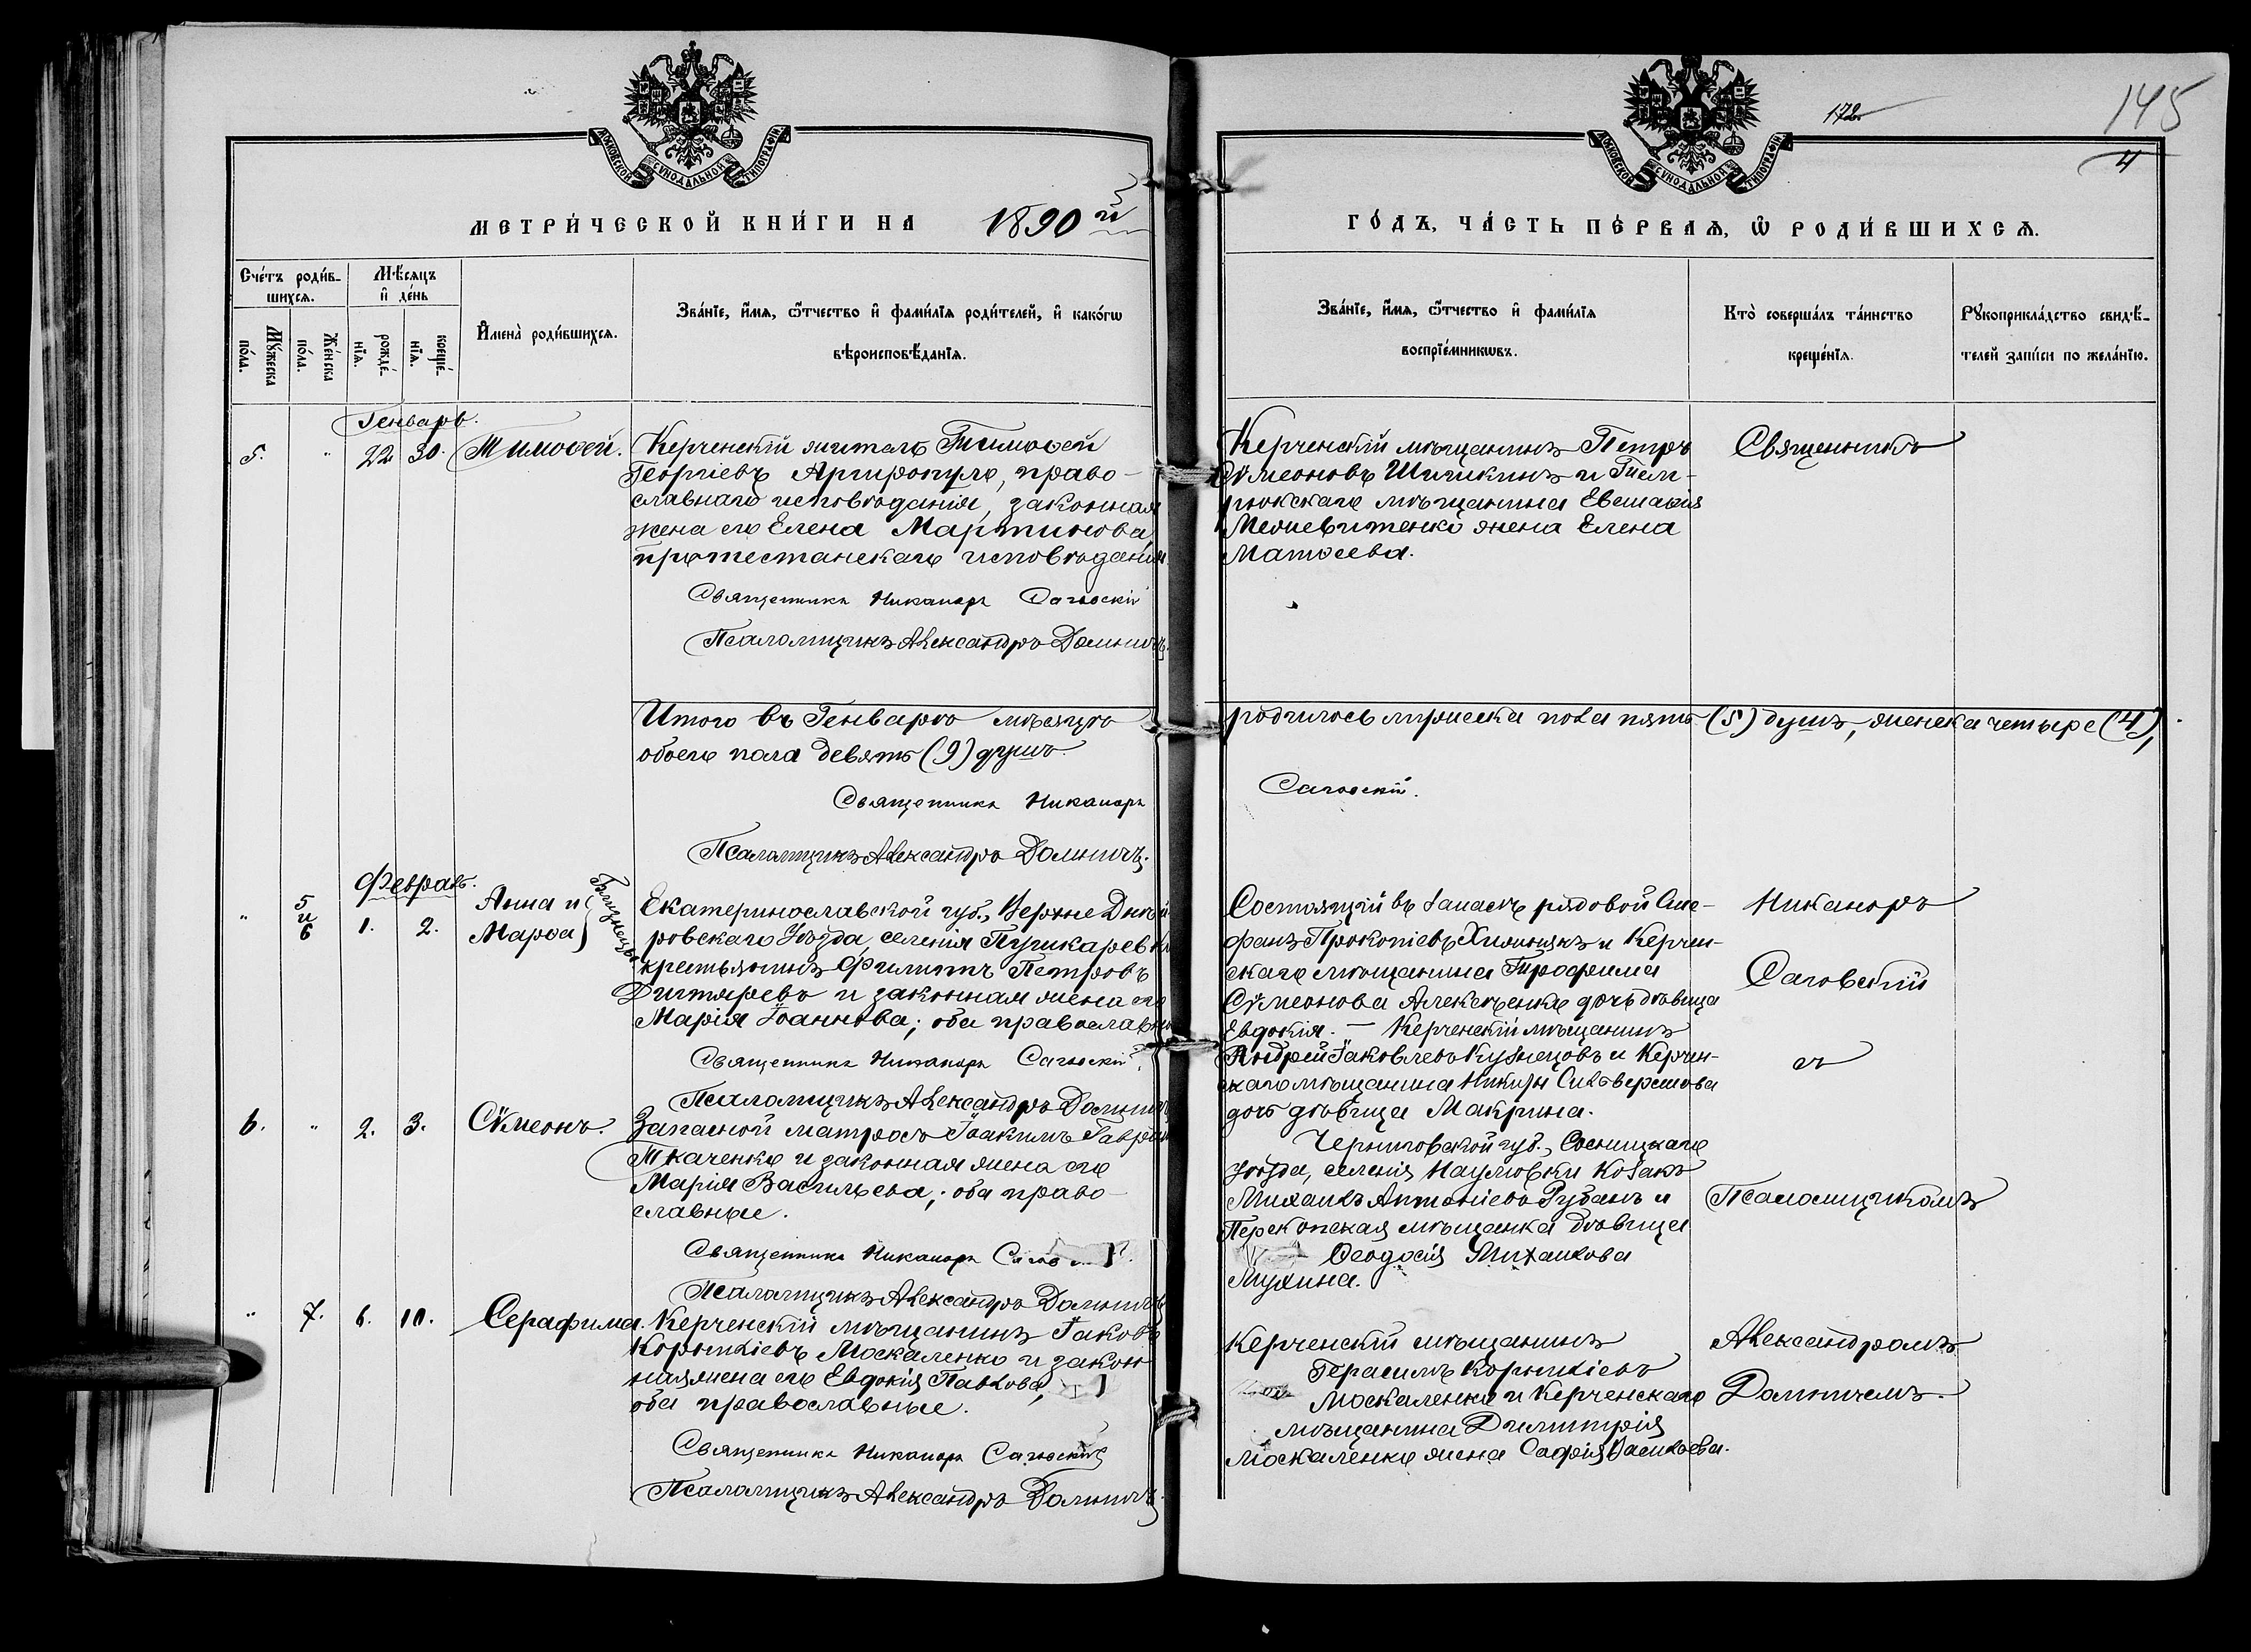 172
145
4
МОСКОВСКОЙ СУНОДАЛЬНОЙ ТИПОГРАФІИ
МОСКОВСКОЙ СУНОДАЛЬНОЙ ТИПОГРАФІИ
МЕТРИ́ЧЕСКОЙ КНИ́ГИ НА 1890й
ГО́ДЪ, ЧА́СТЬ ПЕ́РВАѦ, Ѡ РОДИ́ВШИХСѦ.
Сче́тъ роди́в-
шихсѧ.
Мѣ́сѧцъ
и҆ де́нь
Мꙋ́жеска
по́ла.
Же́нска
по́ла.
рожде́-
нїѧ.
креще́-
нїѧ.
И҆мена̀ роди́вшихсѧ.
Зва́нїе, и҆́мѧ, ѻ҆́тчество и҆ фами́лїѧ роди́телей, и҆ како́гѡ
вѣроисповѣ́данїѧ.
Зва́нїе, и҆́мѧ, ѻ҆́тчество и҆ фами́лїѧ
воспрїе́мникѡвъ.
Кто̀ соверша́лъ та́инство
креще́нїѧ.
Рꙋкоприкла́дство свидѣ́-
телей за́писи по жела́нїю.
Генварь.
5. " 22 30. Тимоѳей.
Керченскій житель Тимоѳей
Георгіевъ Аргиропуло, право-
славнаго исповѣданія, законная
жена его Елена Мартинова
протестанскаго исповѣданія.
Священникъ Никаноръ Саговскій
Псаломщикъ Александръ Долинич
Керченскій мѣщанинъ Петръ
Сѵмеоновъ Шишкинъ и Тем-
рюкскаго мѣщанина
жена Елена
Матѳеева.
Священникъ
Итого въ Генварѣ мѣсяцѣ
обоего пола девять (9) душъ.
родилось мужеска пола пять (5) душъ, женска четыре (4),
Священникъ Никаноръ
Саговскій.
Псаломщикъ Александръ Долинич.
Феврал.
" 5 и 6 1. 2. Анна и
Марѳа } Близнецы
Екатеринославской губ., Верхне Днѣп
ровскаго Уѣзда, селенія Пушкаревки
крестьянинъ Филиппъ Петровъ
Дигтяревъ и законная жена его
Марія Іоаннова; оба православн
Священникъ Никаноръ Саговскій.
Псаломщикъ Александръ Долинич
Состоящій въ запасѣ рядовой Сте-
фанъ Прокопіевъ и Керчен-
скаго мѣщанина Трофима
Сѵмеонова Алексѣенко дочь дѣвица
Евдокія. — Керченскій мѣщанинъ
Андрей Іаковлевъ Кузнецовъ и Керчен-
скаго мѣщанина Никиты Сильверстова
дочь дѣвица Макрина.
Никаноръ
Саговскій
съ
6. " 2. 3. Сѵмеонъ.
Запасной матросъ Іоакимъ Гаврил
Ткаченко и законная жена его
Марія Васильева; оба право-
славные.
Священникъ Никаноръ Сагов
Псаломщикъ Александръ Долинич
Черниговской губ., Сосницкаго
уѣзда, селенія Наумовки козакъ
Михаилъ Антоніевъ Рубанъ и
Перекопская мѣщанка дѣвица
Ѳеодосія Михаилова
Мухина.
Псаломщикомъ
" 7. 6. 10. Серафима.
Керченскій мѣщанинъ Іаковъ
Корниліевъ Москаленко и закон
ная жена его Евдокія Павлова,
оба православные.
Священникъ Никаноръ Саговскій
Псаломщикъ Александръ Долинич.
Керченскій мѣщанинъ
Герасимъ Корниліевъ
Москаленко и Керченскаго
мѣщанина Димитрія
Москаленко жена Софія Васильева.
Александромъ
Долиничемъ.